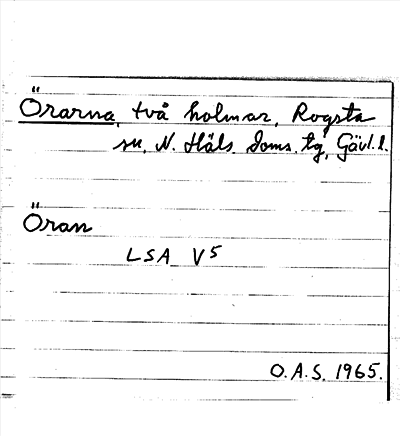 Örarna, två holmar, Rogsta
sn, N. Häls. Doms. tg, Gävl. l.
Öran
LSA V5
O.A.S. 1965.